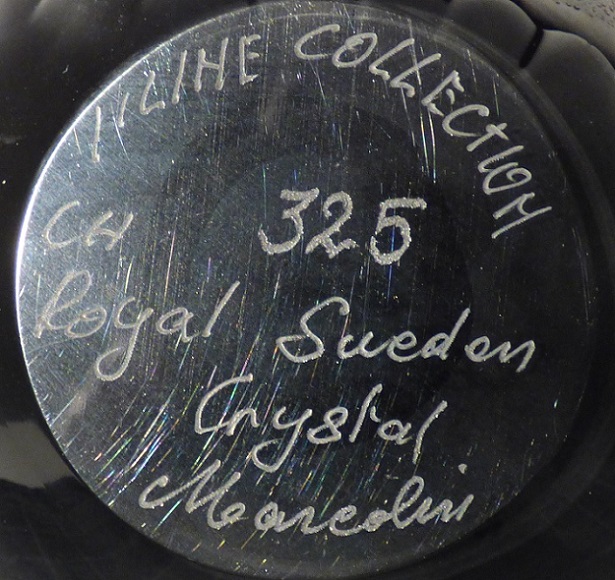 I'LINE COLLECTION
CH 325
Royal Sweden
Crystal
Marcolin